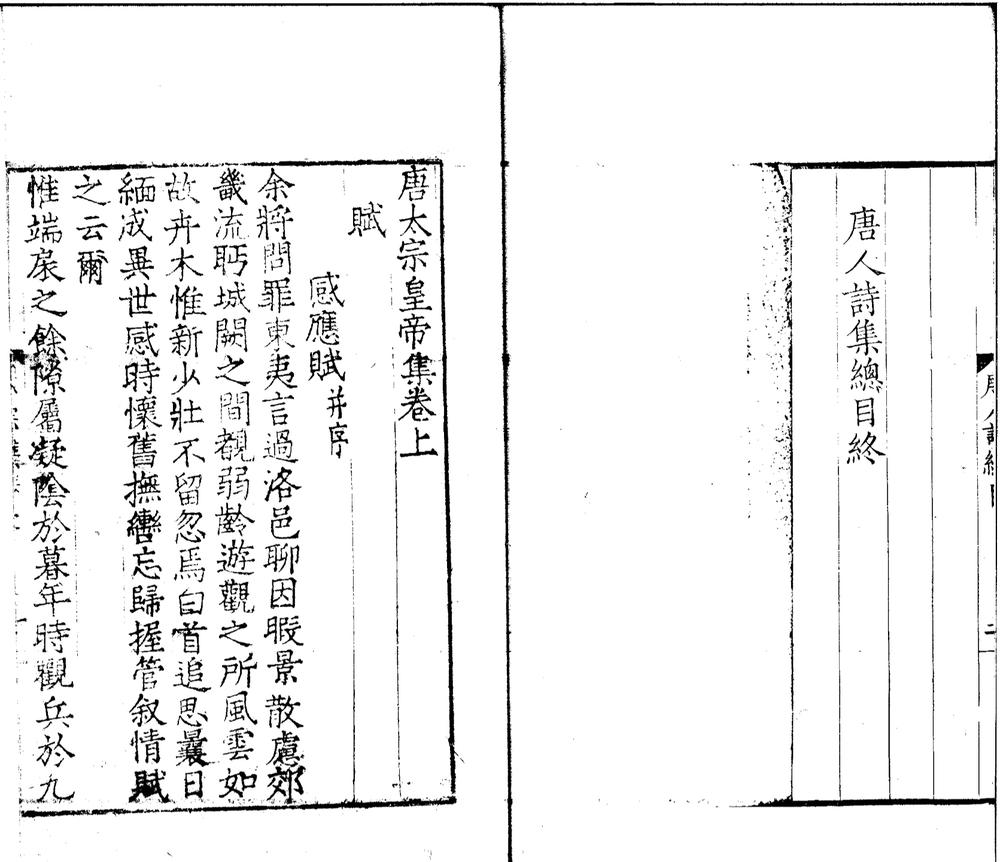 唐人詩集總目終
唐太宗皇帝集卷上
賦
感應賦并序
余將問罪東夷言過洛邑聊因暇景散慮郊
畿流眄城闕之間覩弱齡遊觀之所風雲如
故卉木惟新少壯不留忽焉白首追思曩日
緬成異世感時懷舊撫轡忘歸握管叙情賦
之云爾
惟端扆之餘隙屬凝陰於暮年時觀兵於九